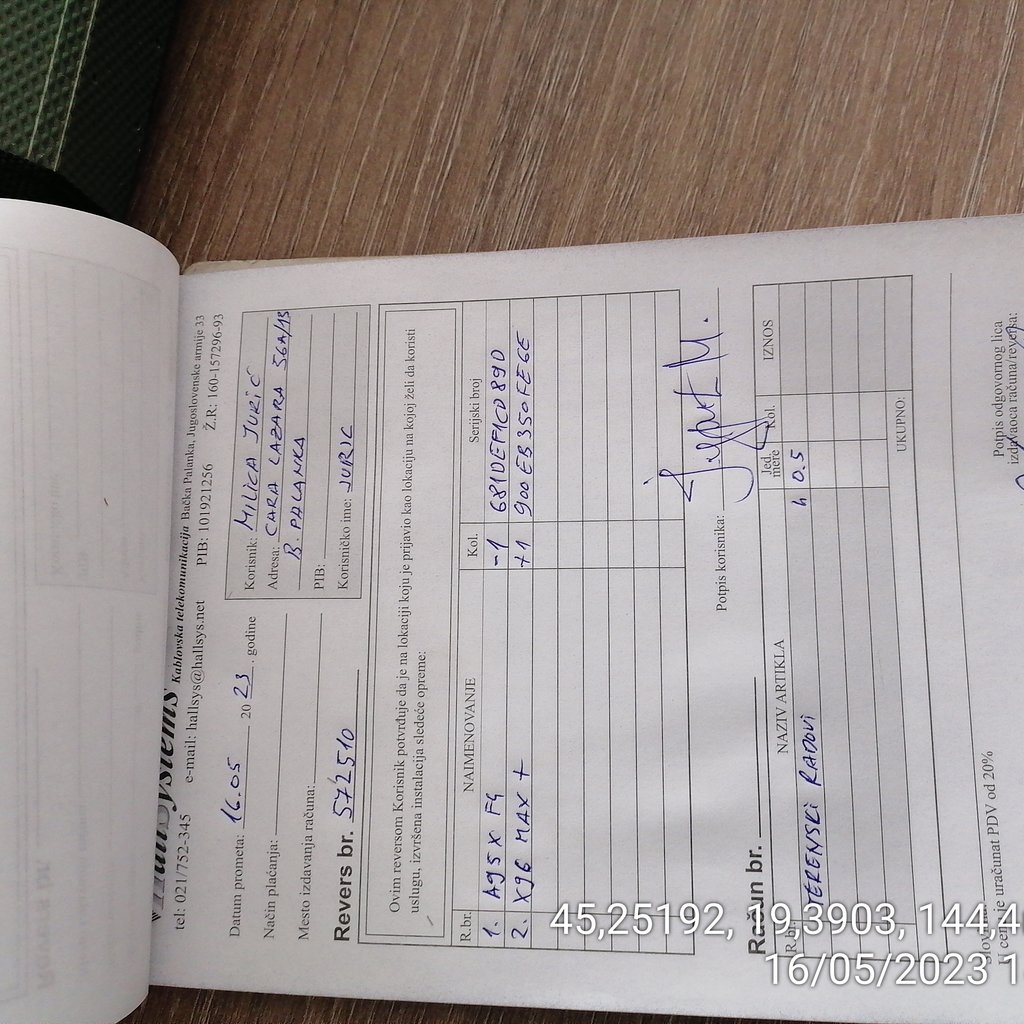 HallSystems Kablovska telekomunikacija Bačka Palanka, Jugoslovenske armije 33
tel: 021/752-345 e-mail: hallsys@hallsys.net PIB: 101921256 Ž.R: 160-157296-93
Datum prometa: 16.05 2023. godine
Način plaćanja:
Mesto izdavanja računa:
Revers br. 572510
Korisnik: MILICA JURIĆ
Adresa: CARA LAZARA 56A/13
B. PALANKA
PIB:
Korisničko ime: JURIC
Ovim reversom Korisnik potvrđuje da je na lokaciji koju je prijavio kao lokaciju na kojoj želi da koristi
uslugu, izvršena instalacija sledeće opreme:
R.br. NAIMENOVANJE Kol. Serijski broj
1. A95X F4 -1 681DEF1CD89D
2. X96 MAX + +1 900EB350FE6E
Potpis korisnika:
Račun br.
R.br. NAZIV ARTIKLA Jed. mere Kol. IZNOS
TERENSKI RADOVI h 0.5
UKUPNO:
U cenu je uračunat PDV od 20%
Potpis odgovornog lica
izdavaoca računa/reversa:
45,25192, 19,3903, 144,4
16/05/2023 1